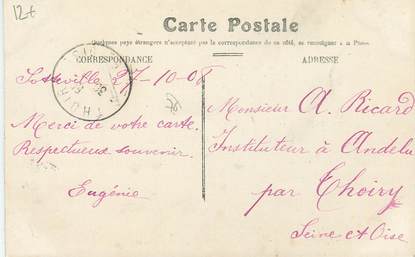 12t
Carte Postale
Quelques pays étrangers n'acceptent pas la correspondance de ce côté, se renseigner à la Poste.
CORRESPONDANCE
ADRESSE
Sotteville 27-10-08
Merci de votre carte.
Respectueux souvenir.
Eugénie
Monsieur A. Ricard
Instituteur à Andelu
par Thoiry
Seine et Oise